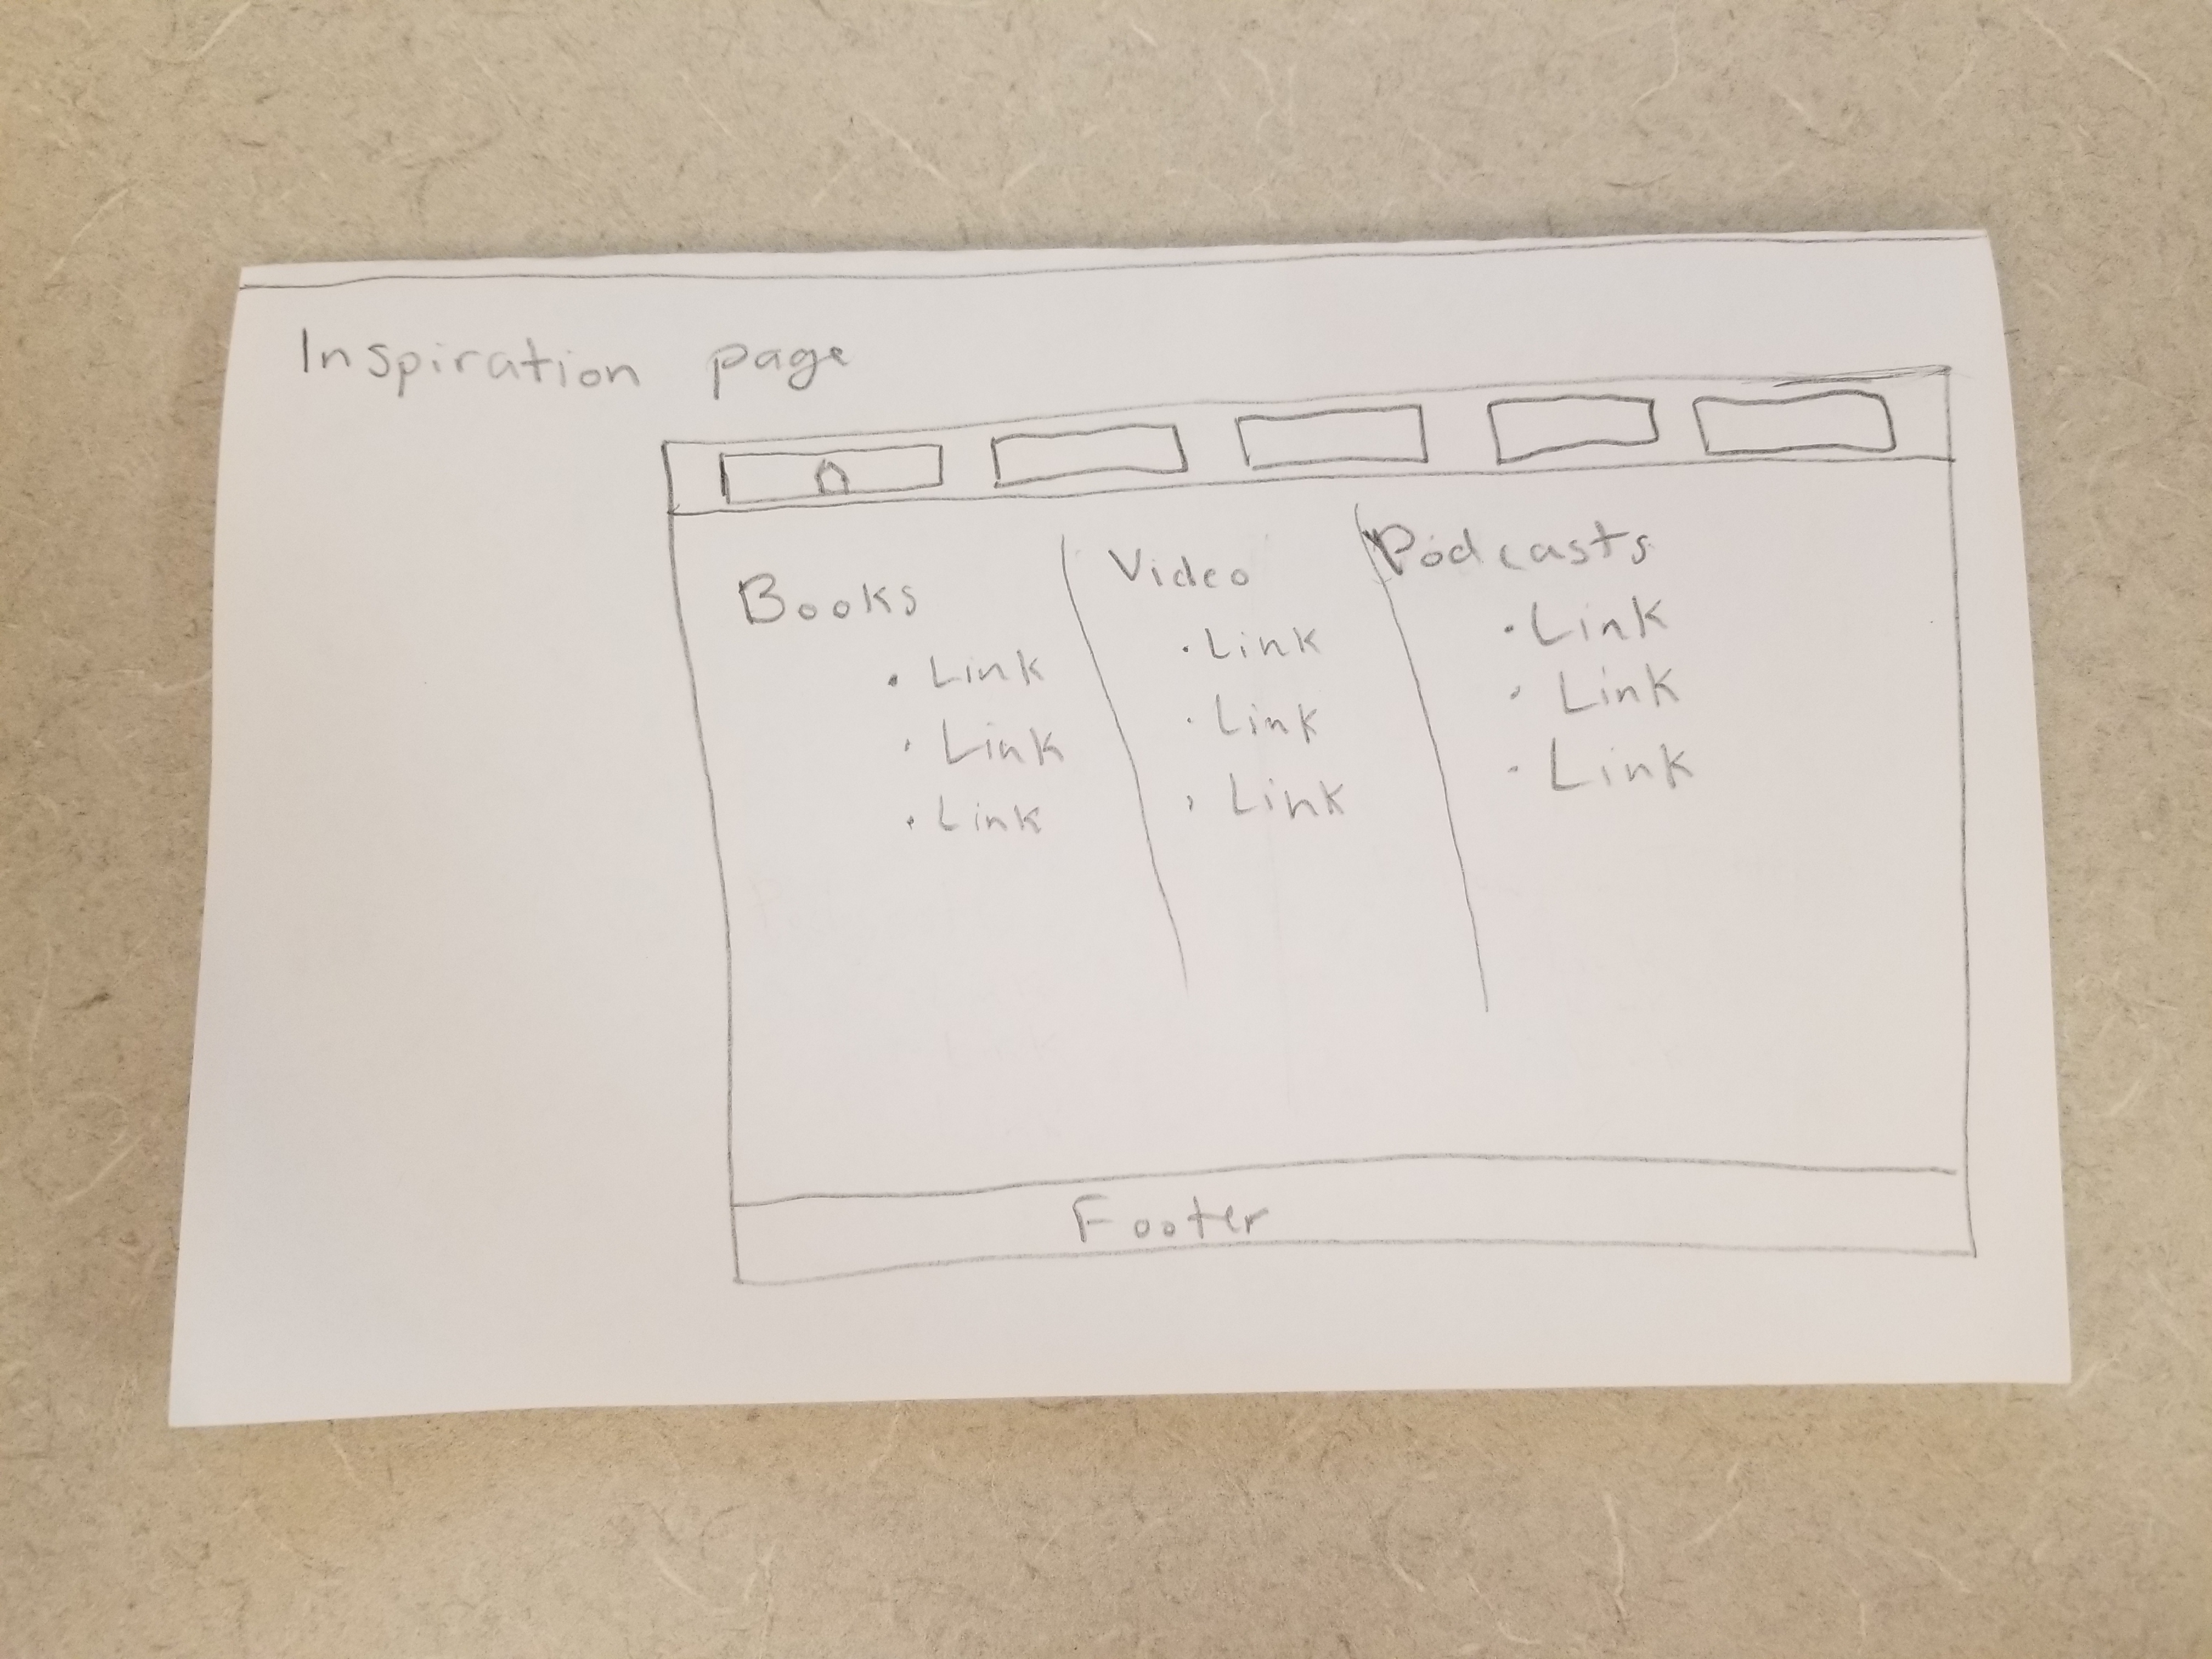 Inspiration page
Books
• Link
• Link
• Link
Video
• Link
• Link
• Link
Podcasts
• Link
• Link
• Link
Footer